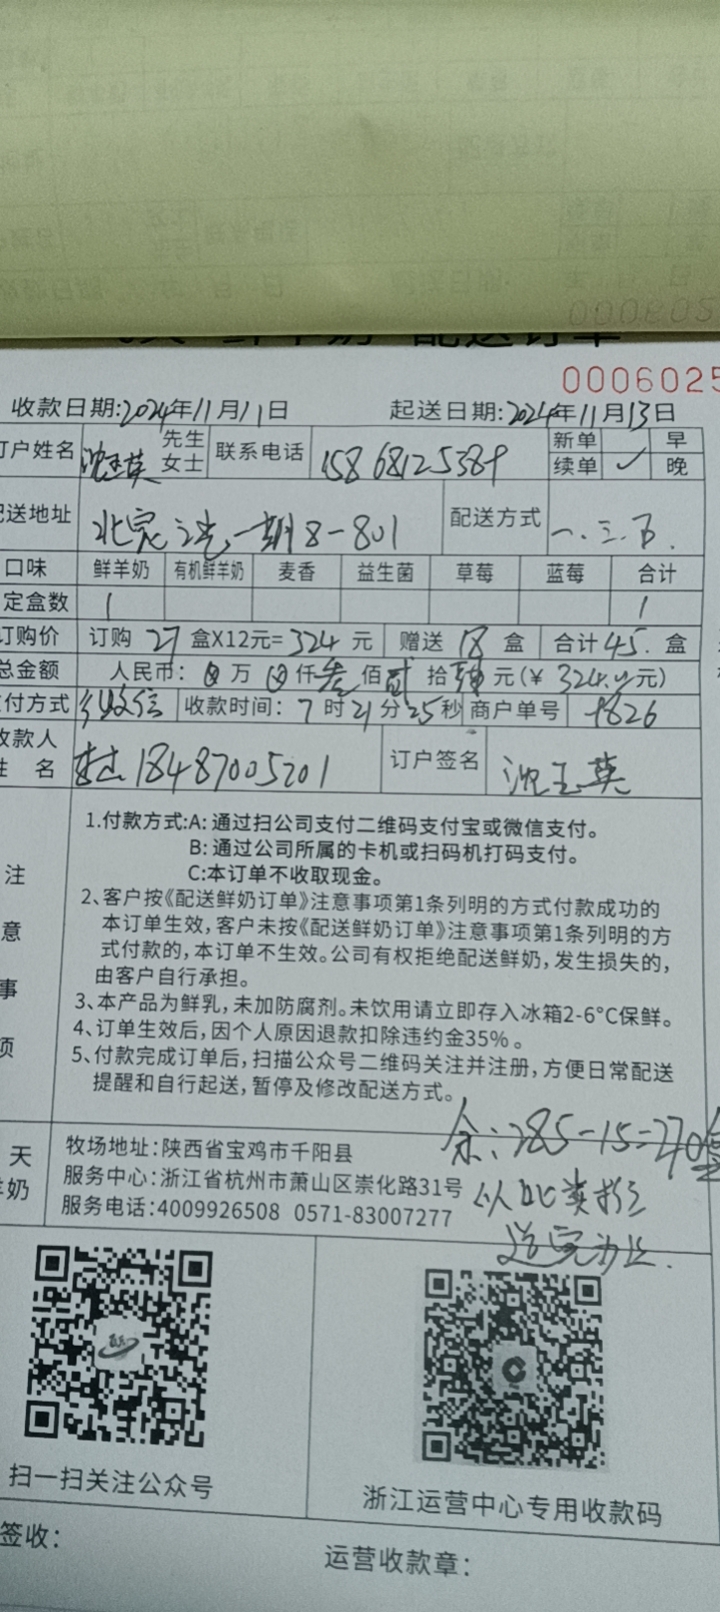 配送订单
0006025
收款日期:2024年11月11日 起送日期:2024年11月13日
订户姓名 沈玉英 先生 女士 联系电话 15868125389 新单 续单 ✓ 早 晚
配送地址 北宸之光一期8-801 配送方式 一.三.五.
口味 鲜羊奶 有机鲜羊奶 麦香 益生菌 草莓 蓝莓 合计
定盒数 1 1
订购价 订购 27 盒X12元=324 元 赠送 18 盒 合计45.盒
总金额 人民币: 万 仟叁佰贰拾肆元(¥ 324.00元)
付方式 微信 收款时间:7时21分25秒 商户单号 4826
收款人
姓 名 18487005201 订户签名 沈玉英
注意事项
1.付款方式:A: 通过扫公司支付二维码支付宝或微信支付。
B: 通过公司所属的卡机或扫码机打码支付。
C:本订单不收取现金。
2、客户按《配送鲜奶订单》注意事项第1条列明的方式付款成功的
本订单生效,客户未按《配送鲜奶订单》注意事项第1条列明的方
式付款的,本订单不生效。公司有权拒绝配送鲜奶,发生损失的,
由客户自行承担。
3、本产品为鲜乳,未加防腐剂。未饮用请立即存入冰箱2-6°C保鲜。
4、订单生效后,因个人原因退款扣除违约金35%。
5、付款完成订单后,扫描公众号二维码关注并注册,方便日常配送
提醒和自行起送,暂停及修改配送方式。
余:285-15=270盒
天
羊奶
牧场地址:陕西省宝鸡市千阳县
服务中心:浙江省杭州市萧山区崇化路31号
服务电话:4009926508 0571-83007277
以此类推
送完为止.
扫一扫关注公众号
浙江运营中心专用收款码
签收:
运营收款章: